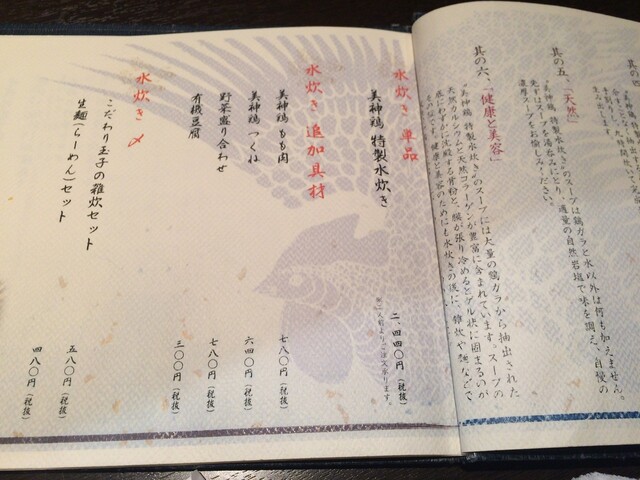 其の五、「天然」
"美神鶏 特製水炊き"のスープは鶏ガラと水以外は何も加えません。
先ずはスープを湯呑みにとり、適量の自然岩塩で味を調え、自慢の
濃厚スープをお愉しみください。
其の六、「健康と美容」
"美神鶏 特製水炊き"のスープには大量の鶏ガラから抽出された
天然カルシウムと天然コラーゲンが豊富に含まれています。スープの
底にわずかに沈殿する骨粉と、膜が張り冷めるとゲル状に固まるのが
その証です。健康と美容のためにも水炊きの後に、雑炊や麺などで
水炊き 単品
美神鶏 特製水炊き 二、四四〇円(税抜)
※二人前よりご注文承ります。
水炊き 追加具材
美神鶏 もも肉 七八〇円(税抜)
美神鶏 つくね 六四〇円(税抜)
野菜盛り合わせ 七八〇円(税抜)
有機豆腐 三〇〇円(税抜)
水炊き 〆
こだわり玉子の雑炊セット 五八〇円(税抜)
生麺(らーめん)セット 四八〇円(税抜)